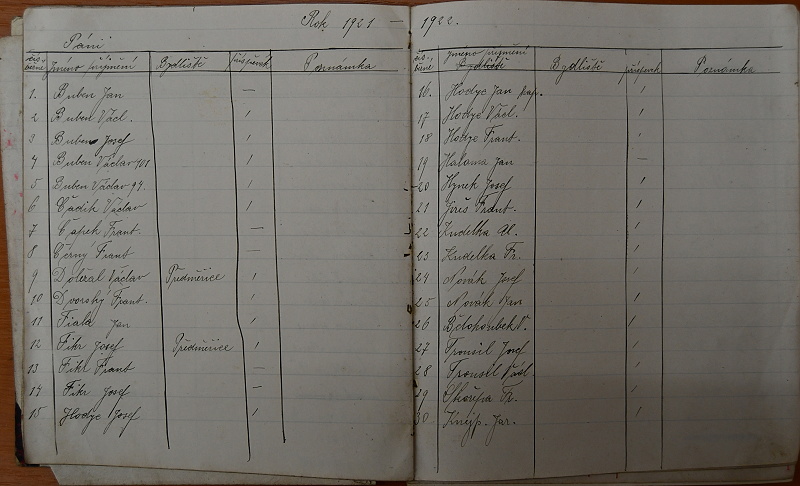 Rok 1921 — 1922.
Páni
Jméno příjmení Bydliště příspěvek Poznámka
1. Buben Jan —
2 Buben Václ. ′
3 Buben Josef ′
4 Buben Václav 101 ′
5 Buben Václav 94. ′
6 Čadík Václav ′
7 Čapek Frant. —
8 Černý Frant —
9 Doležal Václav Předměřice ′
10 Dvorský Frant. ′
11 Fiala Jan ′
12 Fikr Josef Předměřice ′
13 Fikr Frant —
14 Fikr Josef —
15 Hodyc Josef ′
Jméno příjmení
Bydliště příspěvek Poznámka
16. Hodyc Jan ′
17 Hodyc Václ. ′
18 Hodyc Frant. ′
19 Jan —
20 Hynek Josef ′
21 Jireš Frant. ′
22 Kudelka Al. ′
23 Kudelka Fr. ′
24 Novák Josef ′
25 Novák Jan ′
26 ′
27 Josef ′
28 ′
29 Skořepa Fr. ′
30 Jar. ′